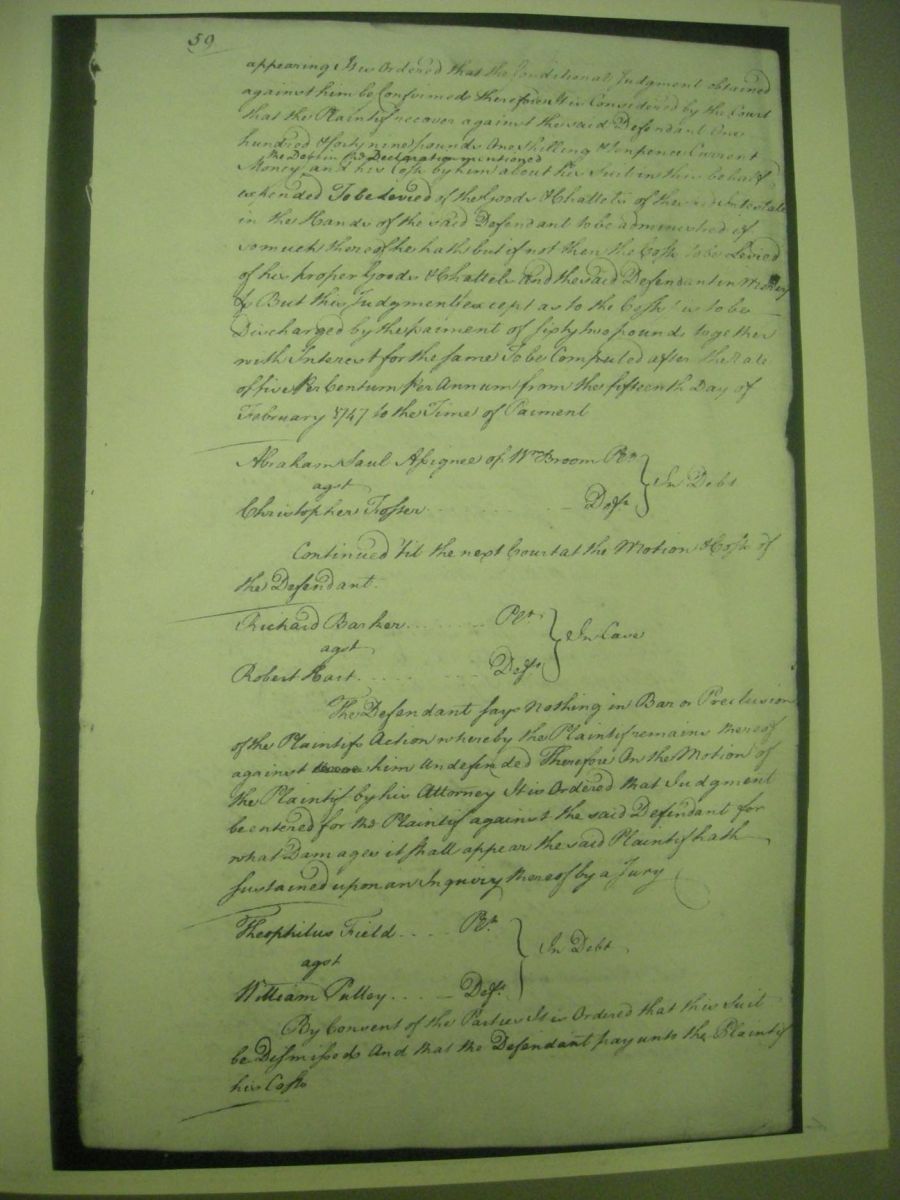 59
appearing It is Ordered that the Conditional Judgment obtained
against him be Confirmed therefore It is Considered by the Court
that the Plaintif recover against the said Defendant One
hundred & forty nine pounds One Shilling & tenpence Current
the Debt in the Declaration mentioned
Money and his Costs by him about his Suit in this behalf
expended To be Levied of the Goods & Chattels of the said Intestate
in the Hands of the said Defendant to be administred if
so much thereof he hath but if not then the Costs to be Levied
of his proper Goods & Chattels And the said Defendant in Mercy
& But this Judgment (except as to the Costs) is to be
Discharged by the paiment of sixty two pounds together
with Interest for the same To be Computed after the rate
of five Per Centum Per Annum from the fifteenth Day of
February 1747 to the Time of Paiment
Abraham Saul Assignee of Wm Broom Plt
agst
Christopher Tosser Deft
In Debt
Continued 'til the next Court at the Motion & Costs of
the Defendant.
Richard Barker Plt
agst
Robert Hart Deft
In Case
The Defendant says Nothing in Bar or Preclusion
of the Plaintifs Action whereby the Plaintif remains thereof
against him Undefended Therefore On the Motion of
the Plaintif by his Attorney It is Ordered that Judgment
be entered for the Plaintif against the said Defendant for
what Damages it shall appear the said Plaintif hath
sustained upon an Inquiry thereof by a Jury
Theophilus Field Plt
agst
William Pulley Deft
In Debt
By Consent of the Parties It is Ordered that this Suit
be Dismissed And that the Defendant pay unto the Plaintif
his Costs